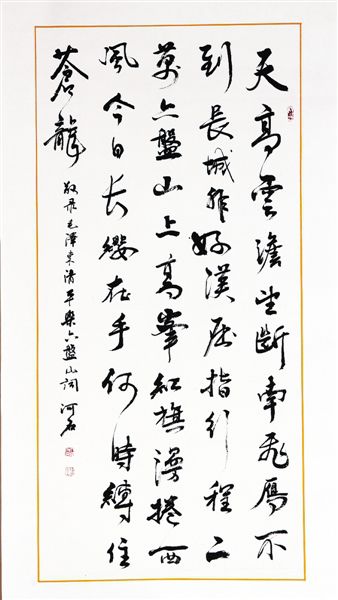 天高雲澹望斷南飛雁不
到長城非好漢屈指行程二
萬六盤山上高峯紅旗漫捲西
風今日长纓在手何時縛住
蒼龍
敬录毛澤東清平樂六盤山詞 河石